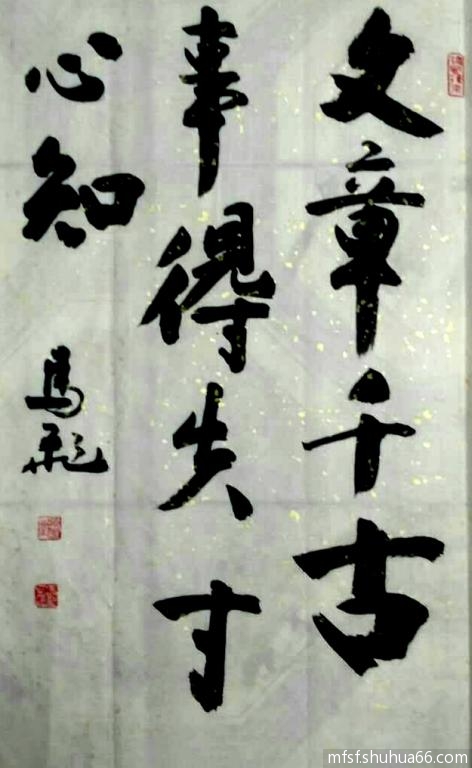 文章千古
事得失寸
心知
mfsf.shuhua66.com